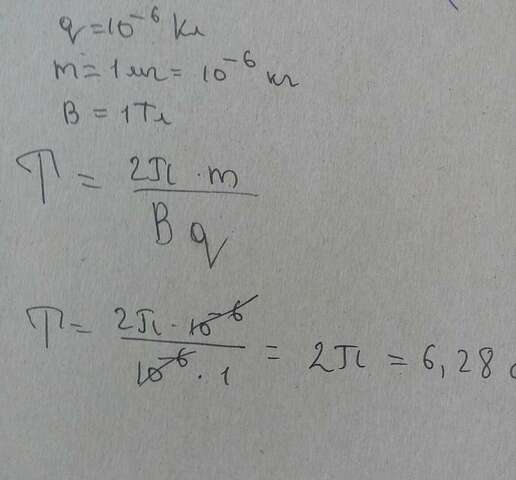 q = 10⁻⁶ Кл
m = 1 мг = 10⁻⁶ кг
B = 1 Тл
T = 2π · m / B q
T = 2π · 10⁻⁶ / 10⁻⁶ · 1 = 2π = 6,28 с